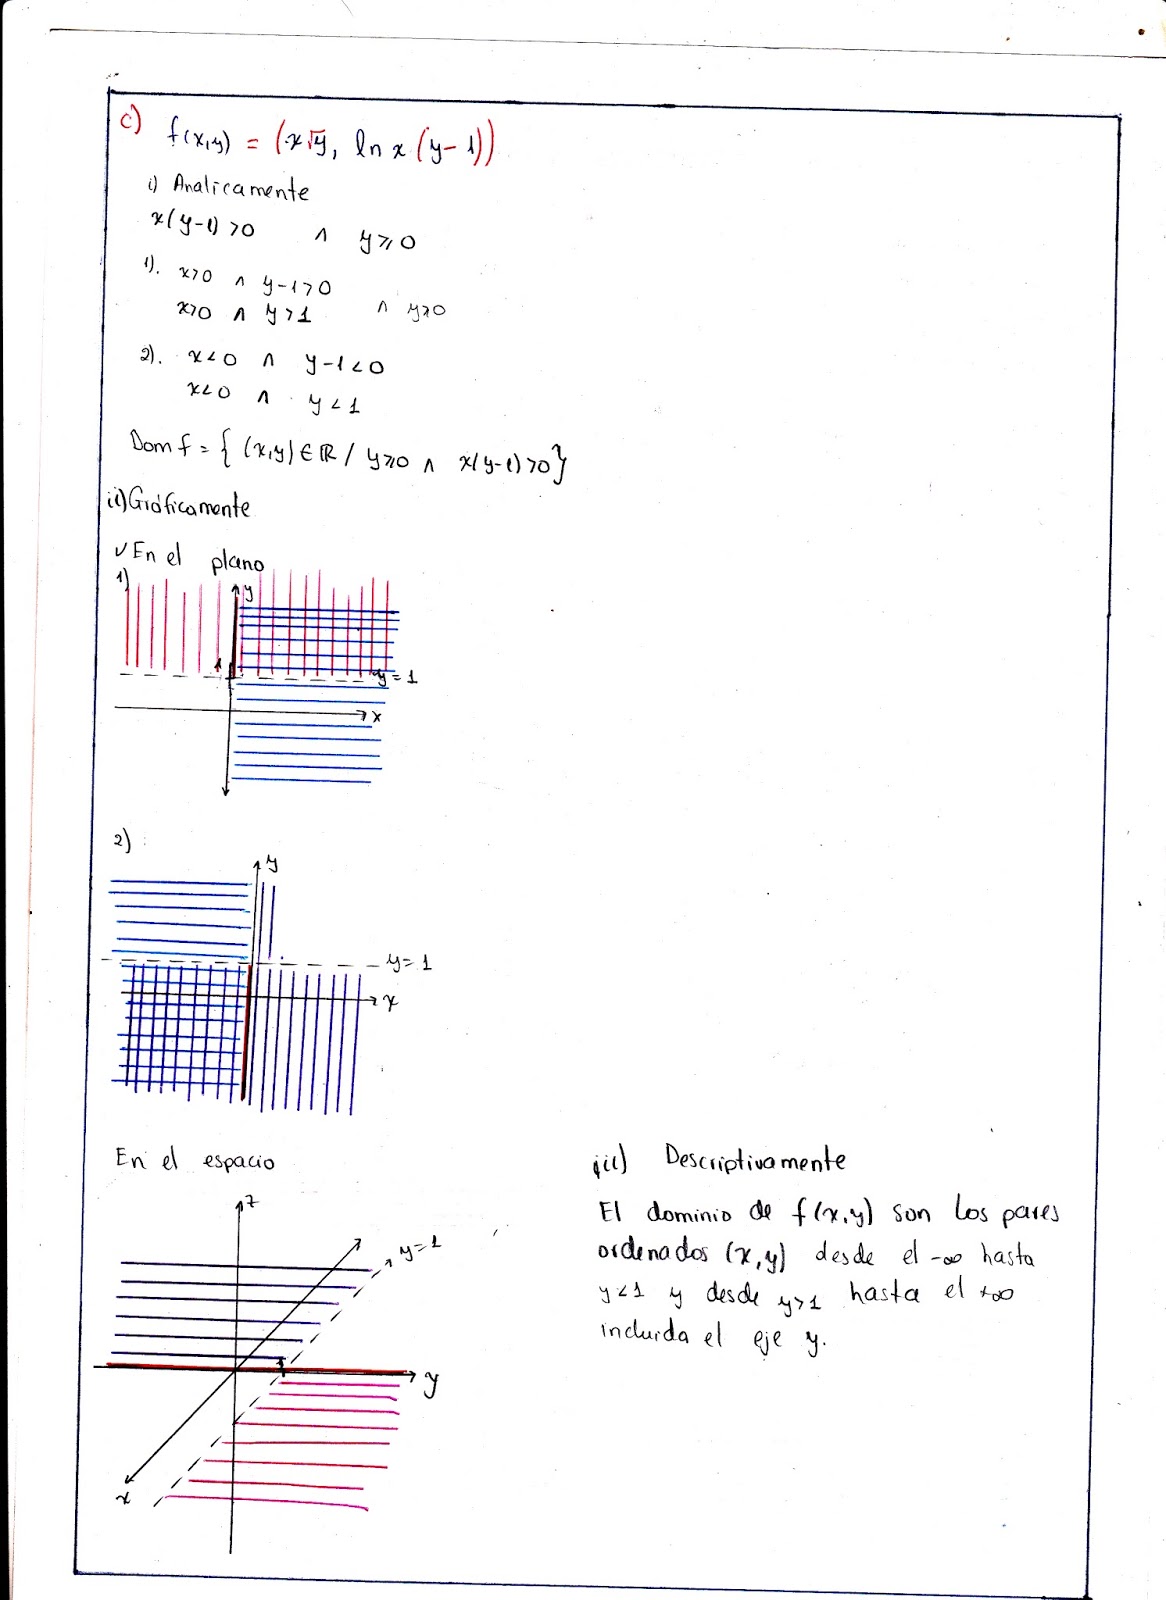 c) f(x,y) = (x√y, ln x (y-1))
i) Analicamente
x(y-1) >0 ∧ y⩾0
1). x>0 ∧ y-1>0
x>0 ∧ y>1 ∧ y⩾0
2). x<0 ∧ y-1<0
x<0 ∧ y<1
Dom f = { (x,y) ∈ ℝ / y⩾0 ∧ x(y-1) >0}
ii) Gráficamente
✓ En el plano
1)
y
1
y = 1
x
2)
y
y= 1
x
En el espacio
z
y=1
1
y
x
iii) Descriptivamente
El dominio de f(x,y) son los pares
ordenados (x,y) desde el -∞ hasta
y<1 y desde y>1 hasta el +∞
incluida el eje y.